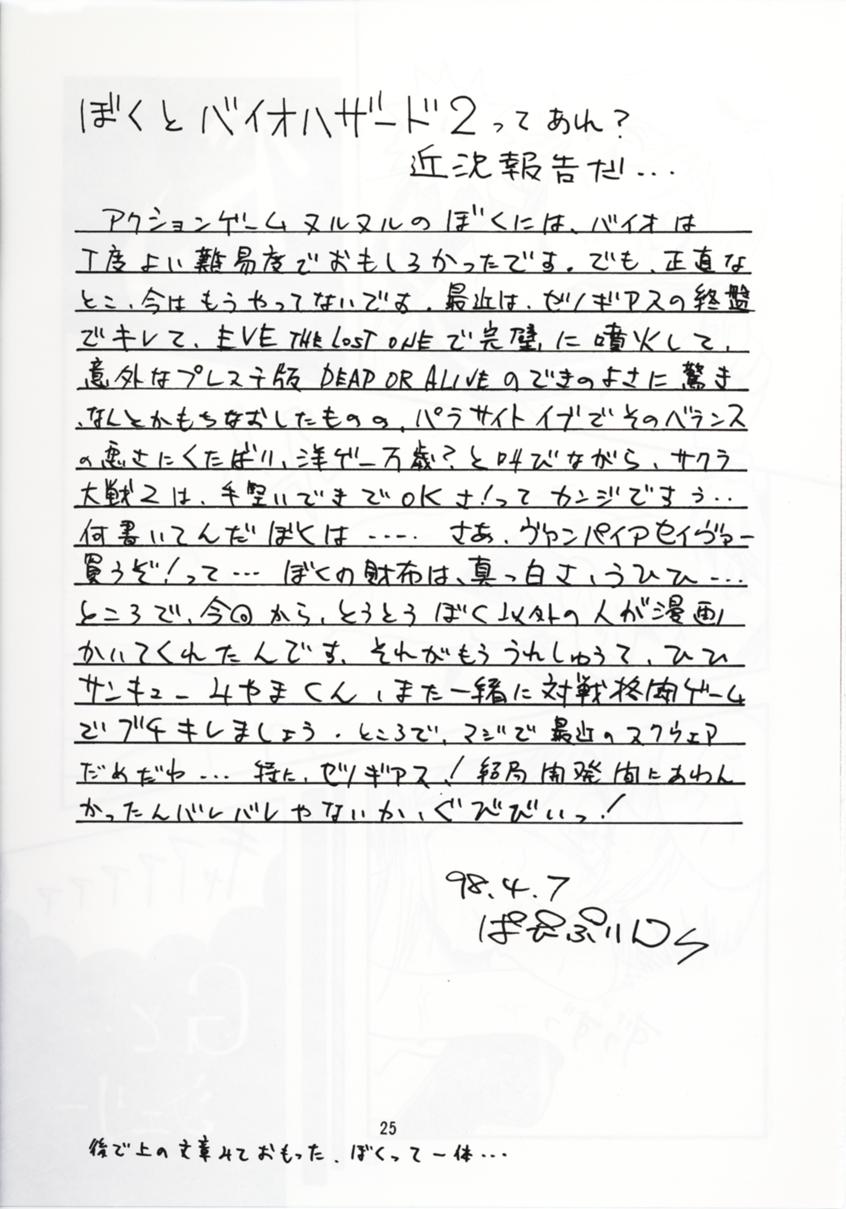 ぼくとバイオハザード2ってあれ？
近況報告だ…
アクションゲームヌルヌルのぼくには、バイオは
丁度よい難易度でおもしろかったです。でも、正直な
とこ、今はもうやってないです。最近は、ゼノギアスの終盤
でキレて、EVE THE LOST ONEで完璧に噴火して、
意外なプレステ版 DEAD OR ALIVEのできのよさに驚き
、なんとかもちなおしたものの、パラサイトイブでそのバランス
の悪さにくたばり、洋ゲー万歳？と叫びながら、サクラ
大戦2は、手堅いできでOKさ！ってカンジですぅ…
何書いてんだぼくは…… さあ、ヴァンパイアセイヴァー
買うぞ！って… ぼくの財布は、真っ白さ、うひひ…
ところで、今回から、とうとうぼく以外の人が漫画
かいてくれたんです、それがもううれしゅうて、ひひ
サンキューみやまくん、また一緒に対戦格闘ゲーム
でブチキレましょう。ところで、マジで最近のスクウェア
だめだわ… 特に、ゼノギアス！結局開発間にあわん
かったんバレバレやないか、ぐびびいっ！
98.4.7
25
後で上の文章みておもった、ぼくって一体…